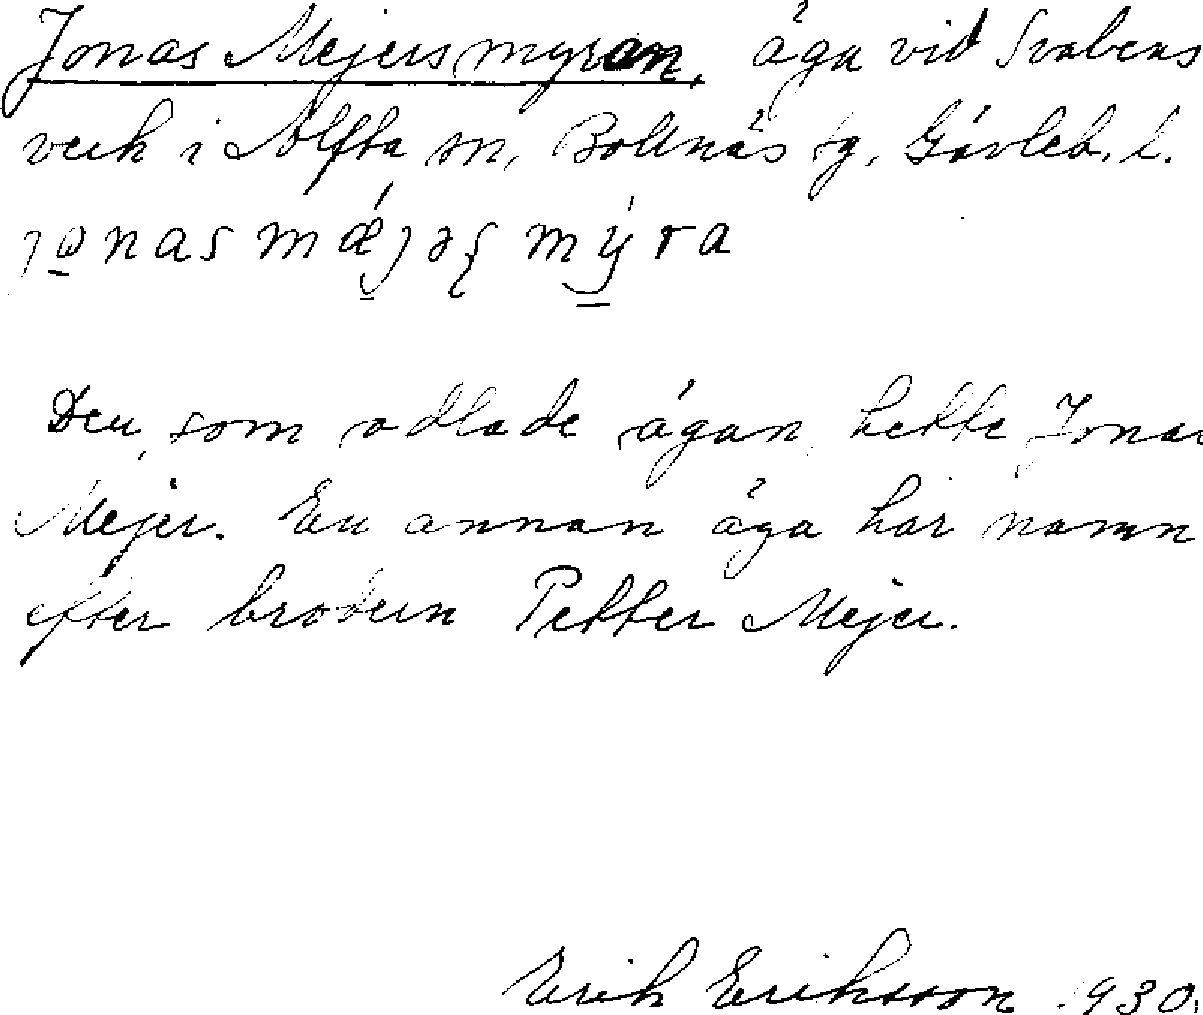 Jonas Mejersmyran, äga vid Svabens
verk i Alfta sn, Bollnäs tg, Gävleb. l.
Den, som odlade ägan, hette Jonas
Mejer. En annan äga har namn
efter brodern Petter Mejer.
Erik Eriksson 1930.